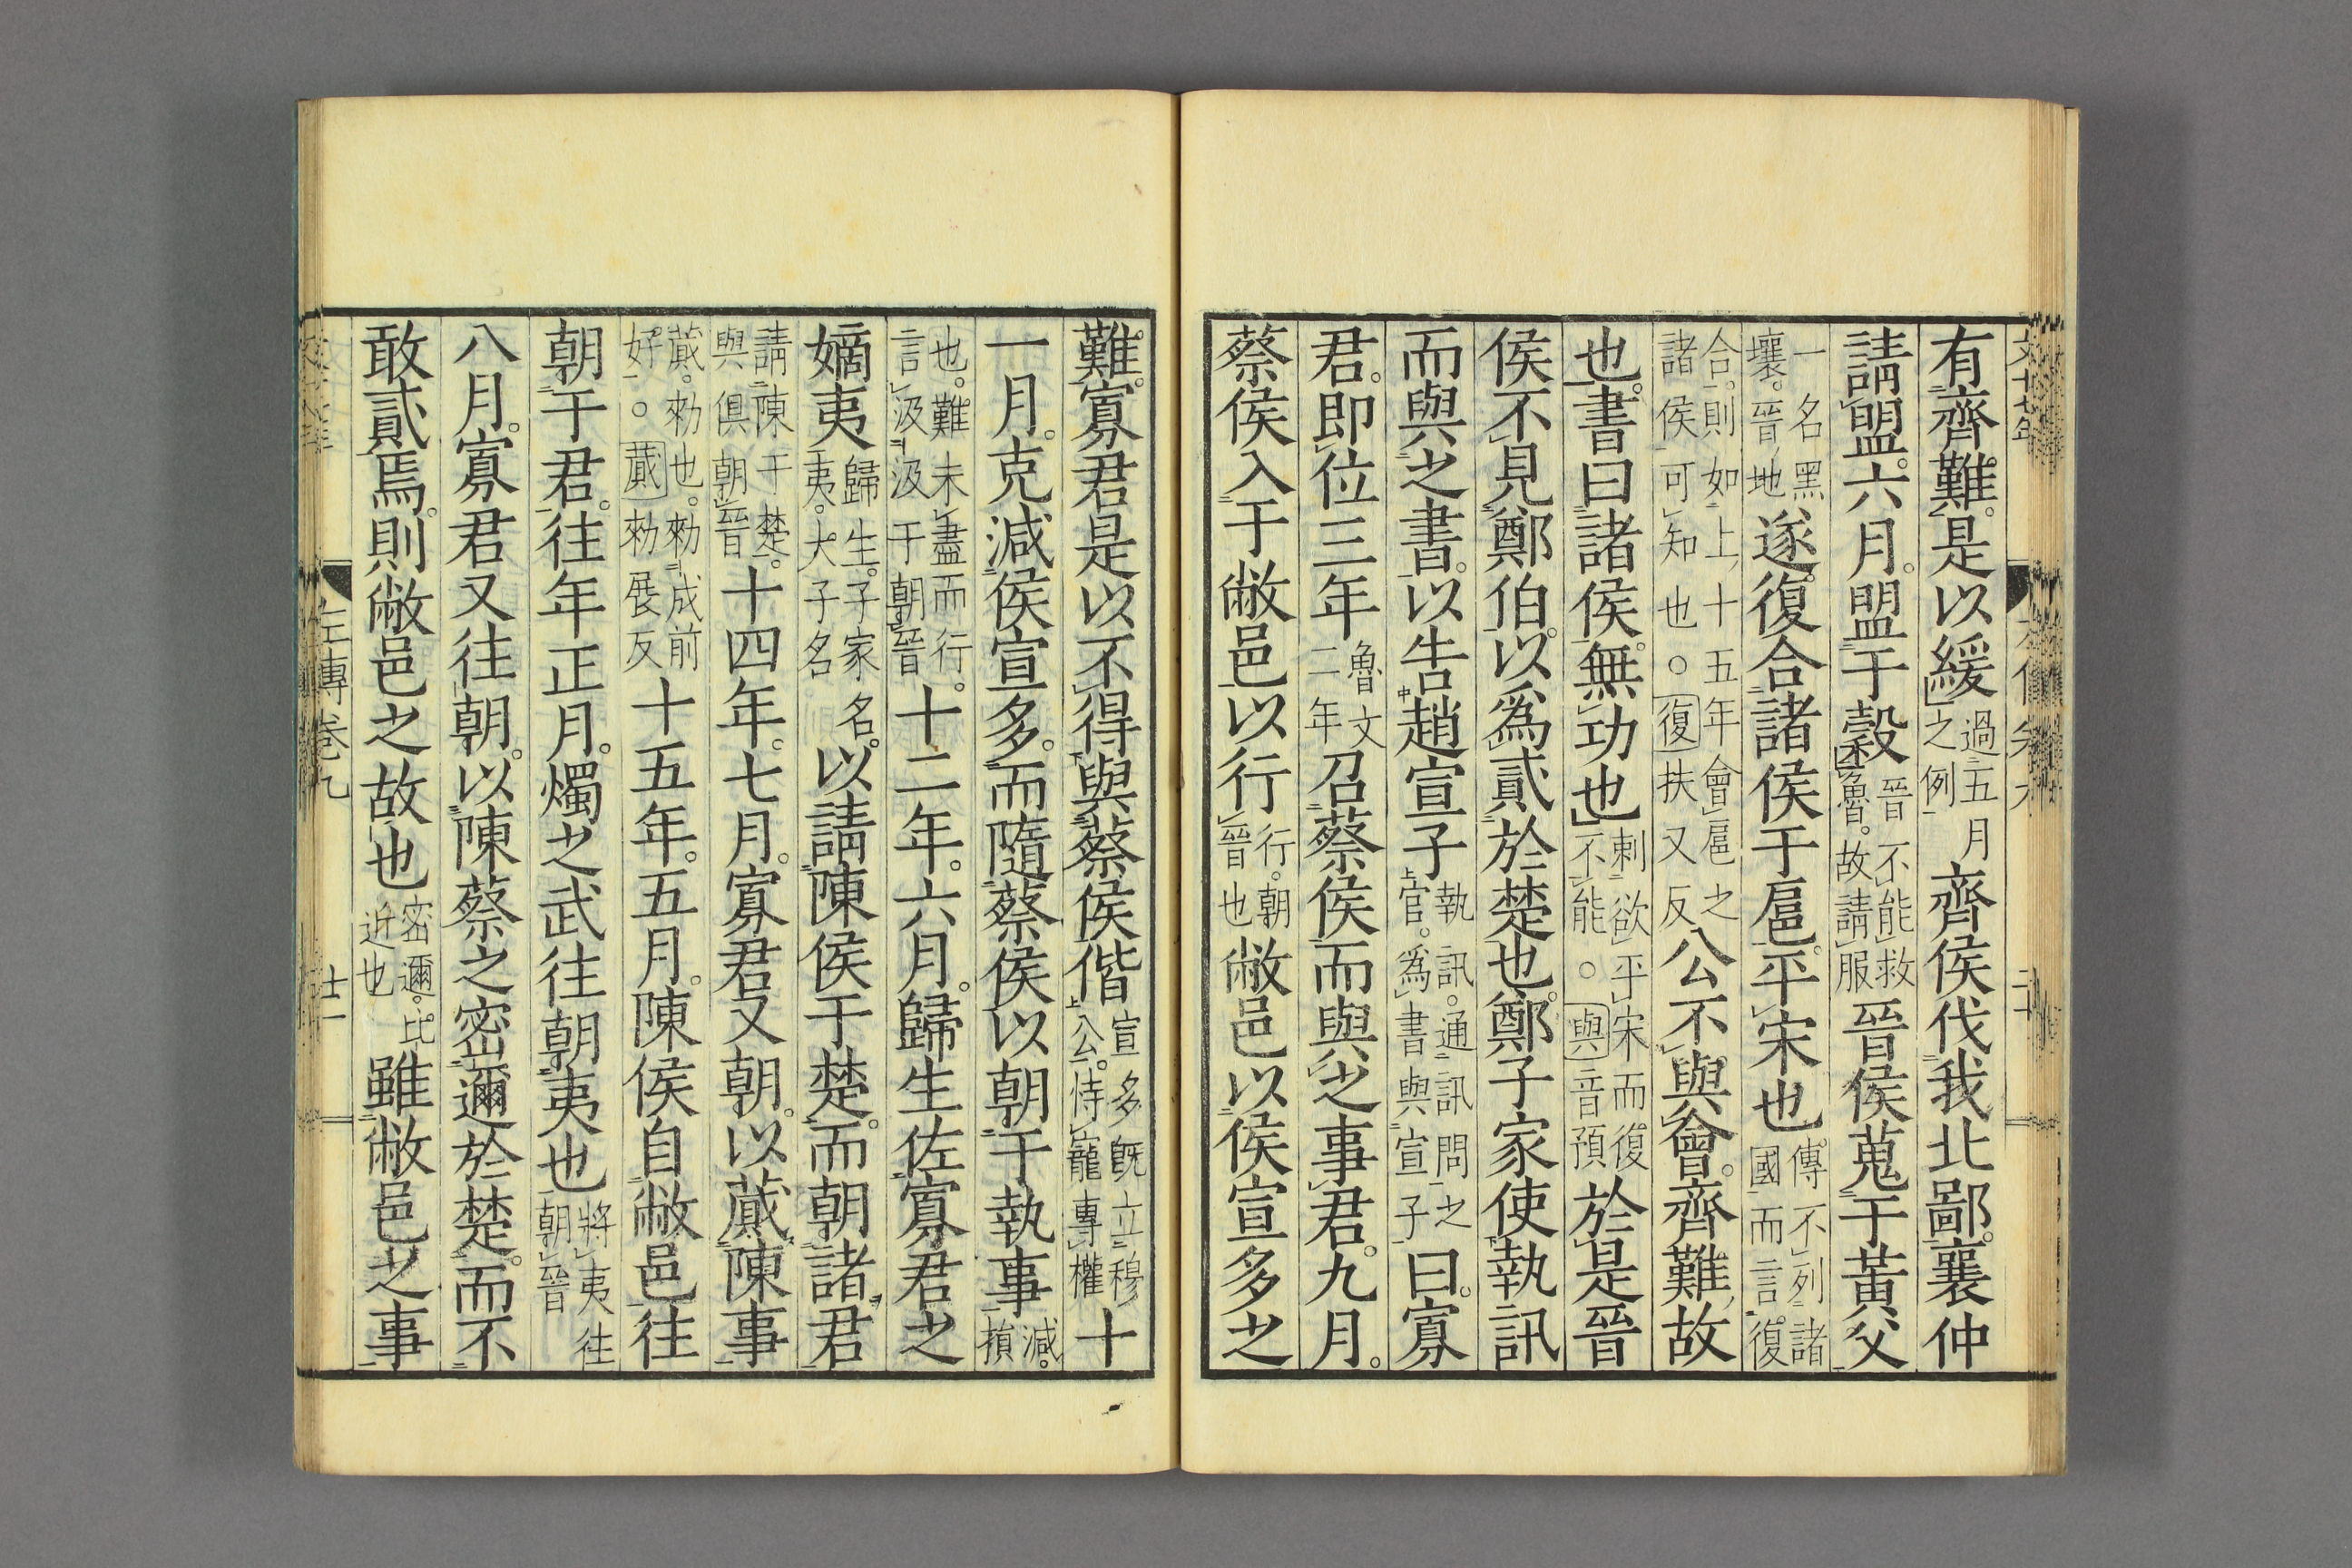 有齊難。是以緩過五月之例齊侯伐我北鄙。襄仲
請盟。六月。盟于穀晉不能救魯。故請服晉侯蒐于黃父
一名黑壤。晉地遂復合諸侯于扈。平宋也。傳不列諸國而言。復
合。則如上十五年會扈之諸侯可知也○復扶又反公不與會。齊難故
也。書曰諸侯。無功也刺欲平宋而復不能。○與音預於是晉
侯不見鄭伯。以爲貳於楚也。鄭子家使執訊
而與之書。以告趙宣子執訊。通訊問之官。爲書與宣子曰。寡
君。即位三年魯文二年召蔡侯而與之事君。九月。
蔡侯入于敝邑以行行。朝晉也敝邑以侯宣多之
難。寡君是以不得與蔡侯偕宣多既立穆公。恃寵專權十
一月。克減侯宣多。而隨蔡侯以朝于執事減。損
也。難未盡而行。言汲汲于朝晉十二年。六月。歸生佐寡君之
嫡夷歸生。子家名。夷。大子名以請陳侯于楚。而朝諸君
請陳于楚。與俱朝晉十四年。七月。寡君又朝。以蕆陳事
蕆。勑也。勑成前好。○蕆勑展反十五年。五月。陳侯自敝邑往
朝于君。往年正月。燭之武往朝夷也將夷往朝晉
八月。寡君又往朝。以陳蔡之密邇於楚。而不
敢貳焉。則敝邑之故也密邇。比近也雖敝邑之事
左傳卷九